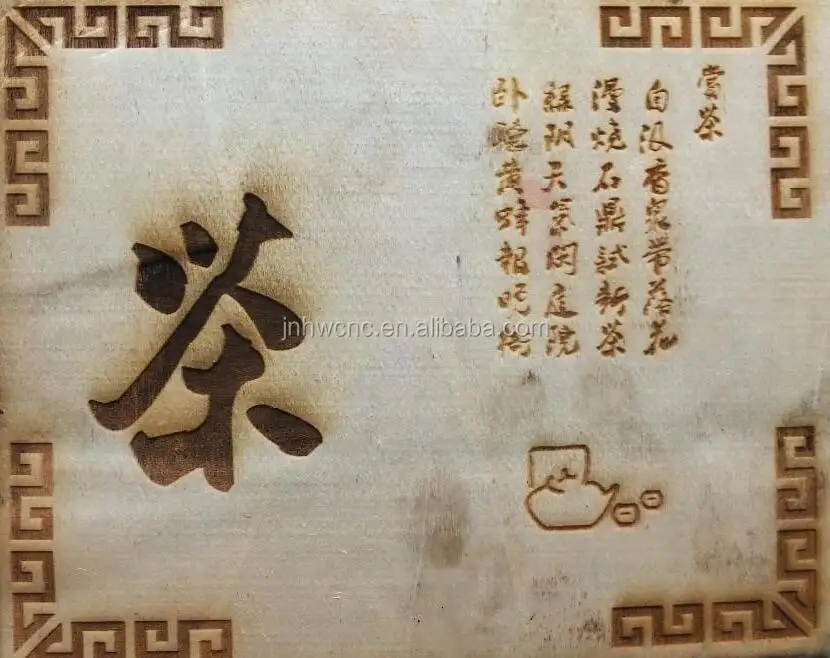 賞茶
自汲香泉帶落花
漫燒石鼎試新茶
綠阴天氣閑庭院
卧聽黄蜂報晚衙
茶
jnhwcnc.en.alibaba.com